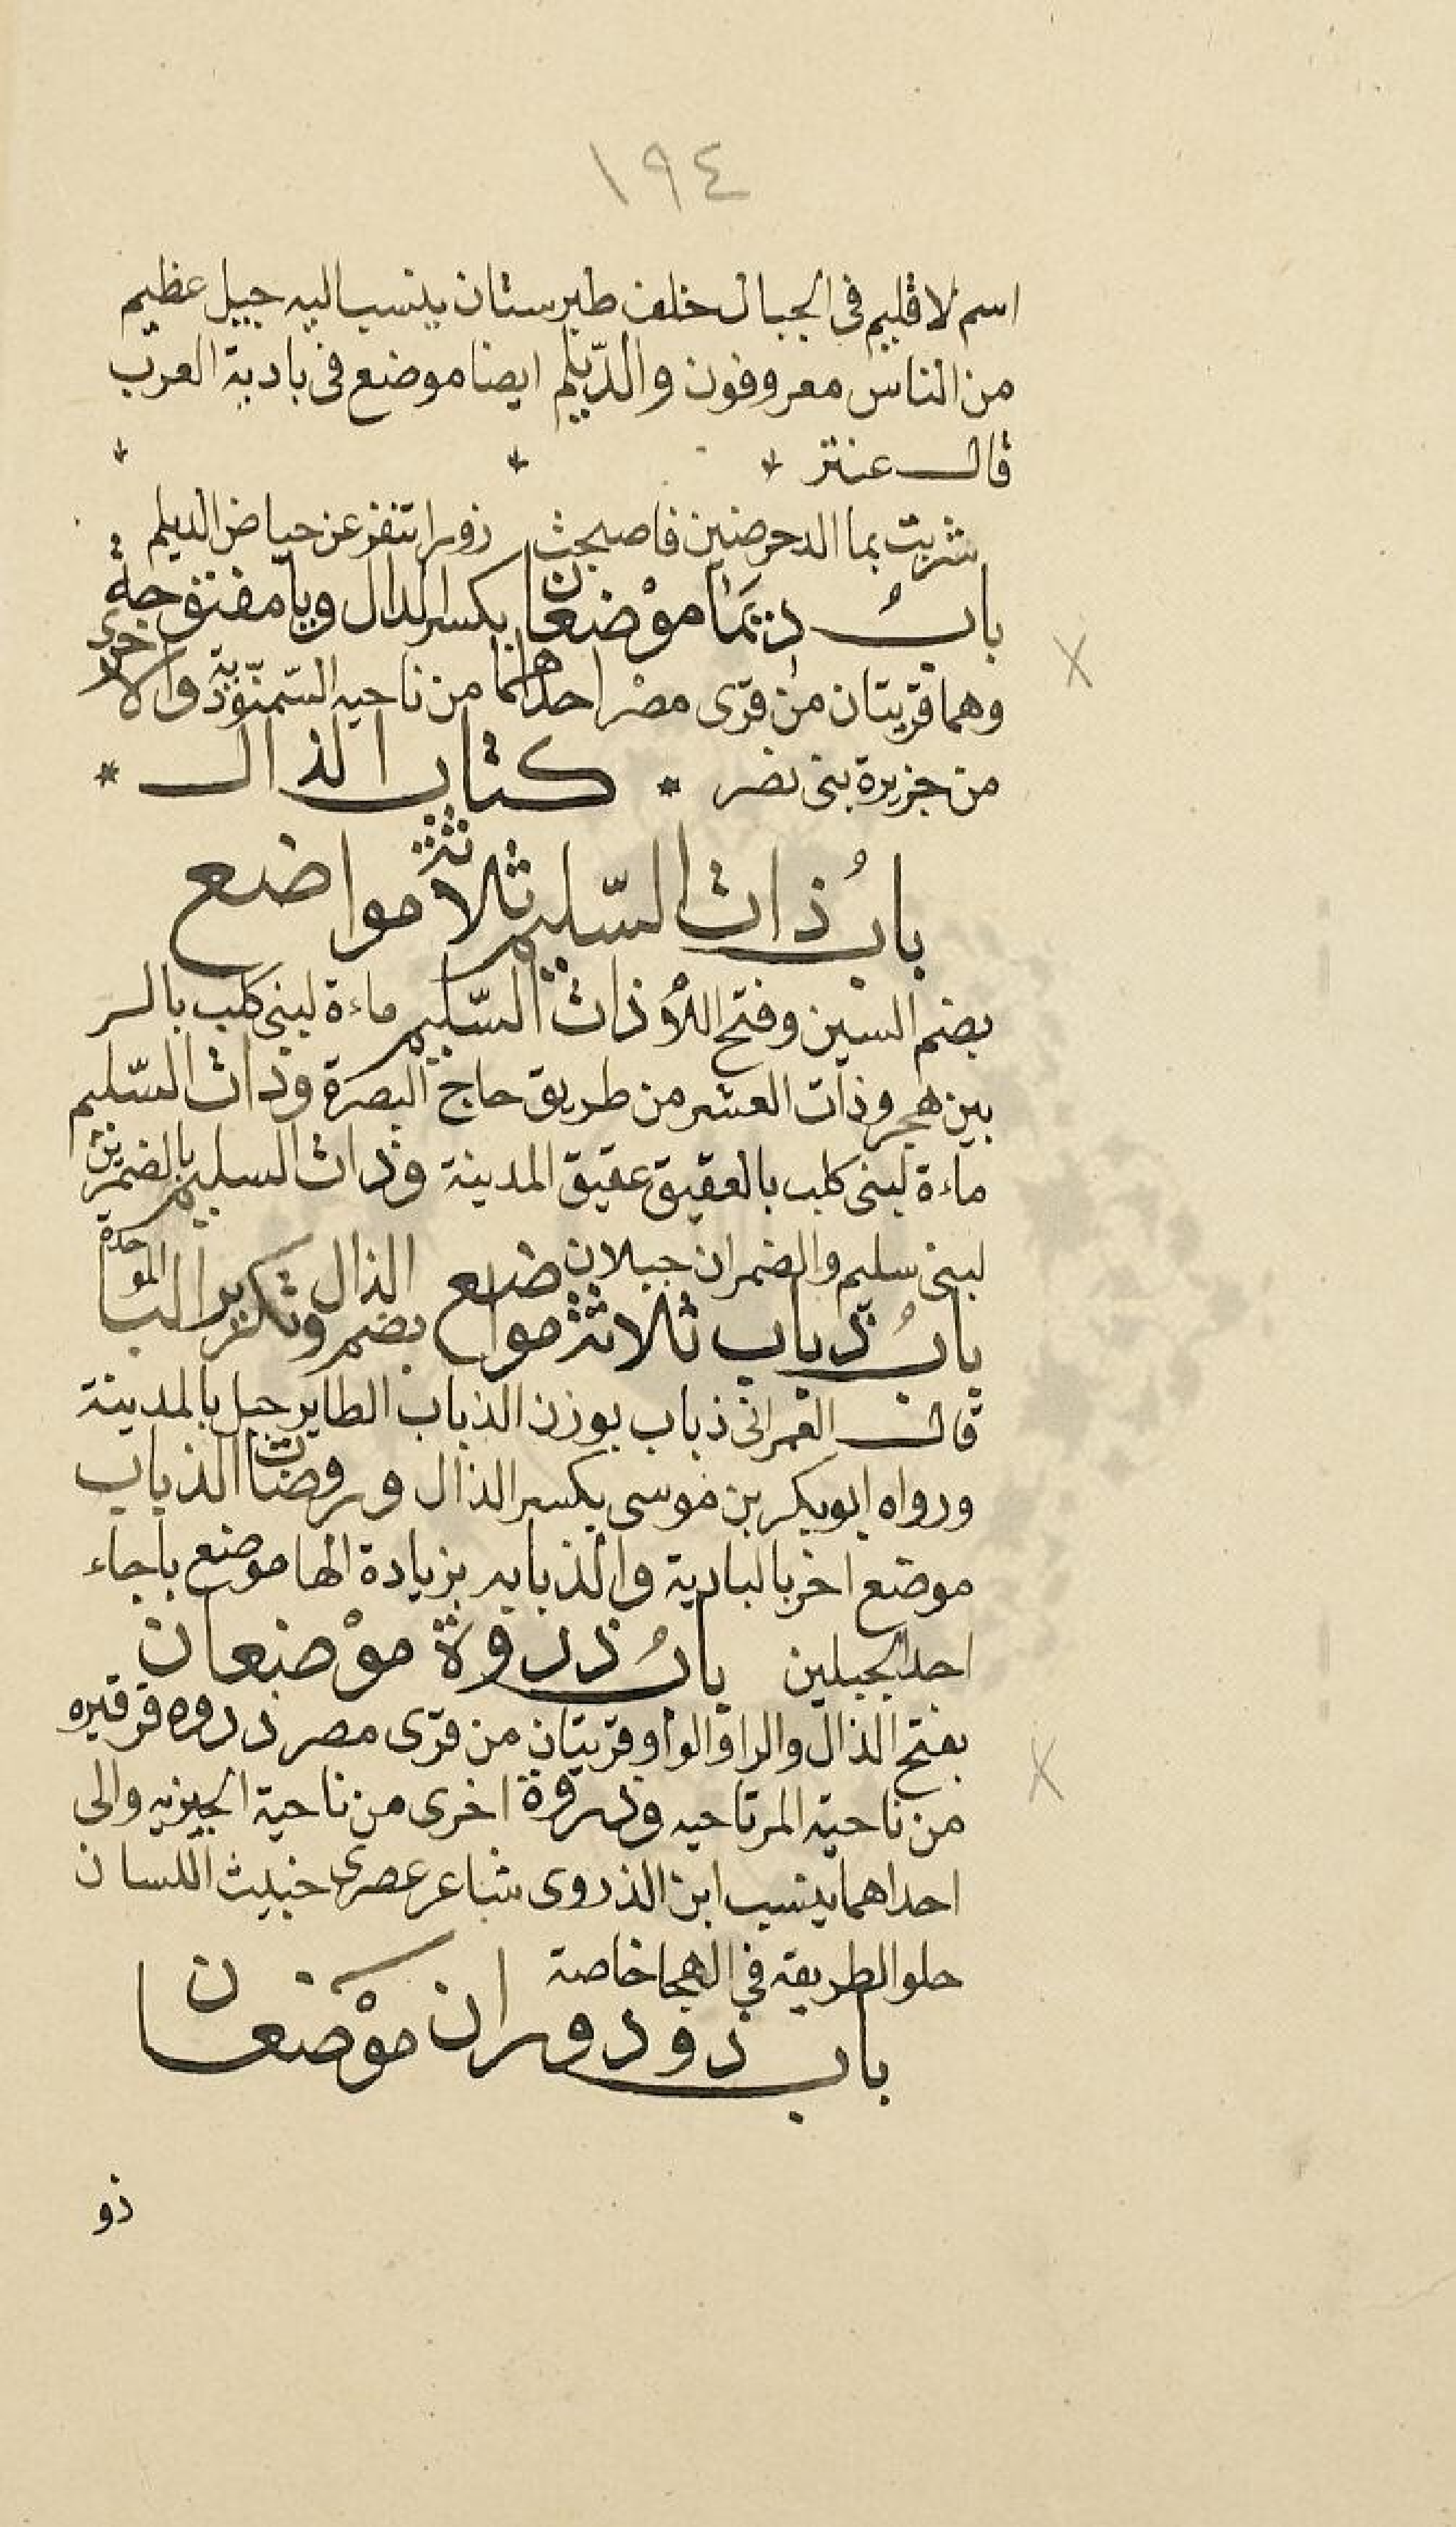 ١٩٤
اسم لاقليم فى الجبال خلف طبرستان ينسب اليه جيل عظيم
من الناس معروفون والدّيلم ايضا موضع فى بادية العرب
قال عنتر
شربت بما الدحرضين فاصبحت زورا تنفر عن حياض الديلم
بابُ ديَمَا موْضعان بكسر الدال ويا مفتوحة
وهما قريتان من قرى مصر احداهما من ناحيه السّمنّوديّة والاخرى
من جزيرة بنى نصر * كتاب الذال *
بابُ ذات السّليم ثلاثة مواضع
بضم السين وفتح اللام وذات السّليم ماءة لبنى كلب بالسر
بين هجر وذات العشر من طريق حاج البصرة وذات السّليم
ماءة لبنى كلب بالعقيق عقيق المدينة وذات السليم بالضمرين
لبنى سليم والضمران جبلان
بابُ ذباب ثلاثة مواضع بضم الذال وتكرير البا الموحدة
قال العمرانى ذباب بوزن الذباب الطاير جبل بالمدينة
ورواه ابو بكر بن موسى بكسر الذال وروضات الذباب
موضع اخر بالبادية والذبابه بزيادة الها موضع باجاء
احد الجبلين بابُ ذروة موْضعان
بفتح الذال والرا والواو قريتان من قرى مصر ذروه قرقيره
من ناحية المرتاحيه وذروة اخرى من ناحية الجيزيه والى
احداهما ينسب ابن الذروى شاعر عصرى خبيث اللسان
حلو الطريقه في الهجا خاصة
باب ذو دوران موْضعان
ذو